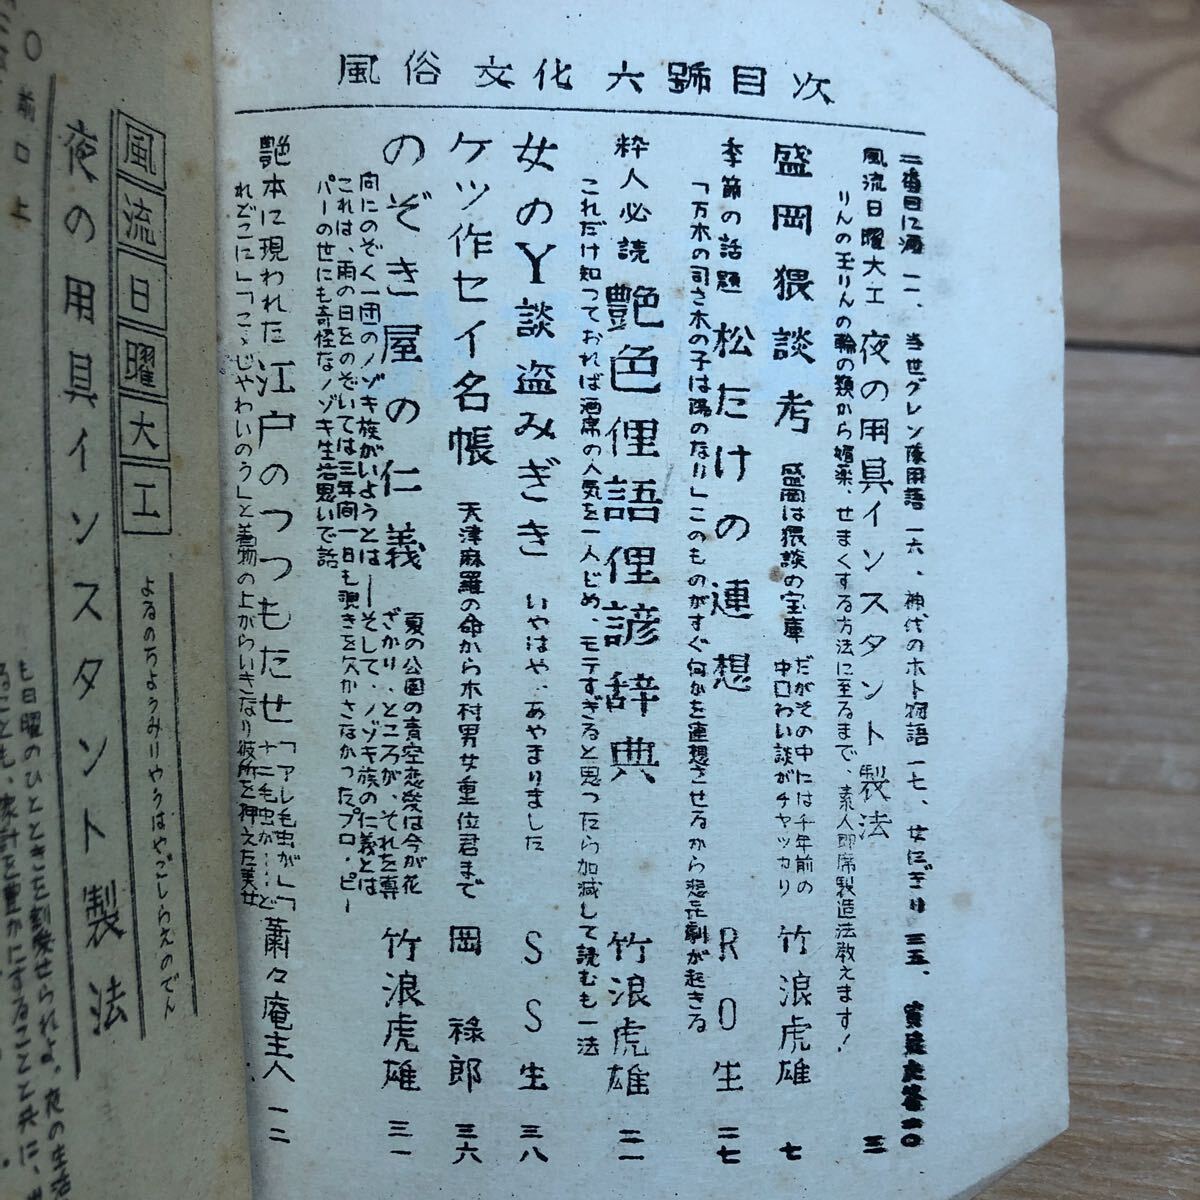 風俗文化六號目次
二番目に満 一一、当世グレン隊用語 一六、神代のホト物語 一七、女にぎり 三五、
風流日曜大工 夜の用具インスタント製法 三
りんの玉りんの輪の類から媚薬、せまくする方法に至るまで、素人即席製造法教えます!
盛岡猥談考 盛岡は猥談の宝庫 だがその中には千年前の
中口わい談がチャッカリ 竹浪虎雄 七
季節の話題 松たけの連想 RO生 二七
「万木の司さ木の子は陽のなり」このものがすぐ何かを連想させるから悲喜劇が起きる
粋人必読 艶色俚語俚諺辞典 竹浪虎雄 二一
これだけ知っておれば酒席の人気を一人じめ、モテすぎると思ったら加減して読むも一法
女のY談盗みぎき いやはや、あやまりました SS生 三八
ケッ作セイ名帳 天津麻羅の命から木村男女重位君まで 岡 祿郎 三六
のぞき屋の仁義 夏の公園の青空恋愛は今が花
ざかり、ところが、それを専 竹浪虎雄 三一
向にのぞく一団のノゾキ族がいようとは――そして、ノゾキ族の仁義とは
これは、雨の日をのぞいては三年間一日も覗きを欠かさなかったプロ・ピー
パーの世にも奇怪なノゾキ生活思いで話
艶本に現われた江戸のつつもたせ 「アレ毛虫が」「
十二毛虫が……ど 蕭々庵主人 一二
れどこに」「こゝじゃわいのう」と着物の上からいきなり彼所を押えた美女
○前口上
風流日曜大工
夜の用具インスタント製法
よるのちようみりやうはやごしらえのでん
も日曜のひとときを割愛せられよ。夜の生活
ることも、家計を豊かにすることと共に、